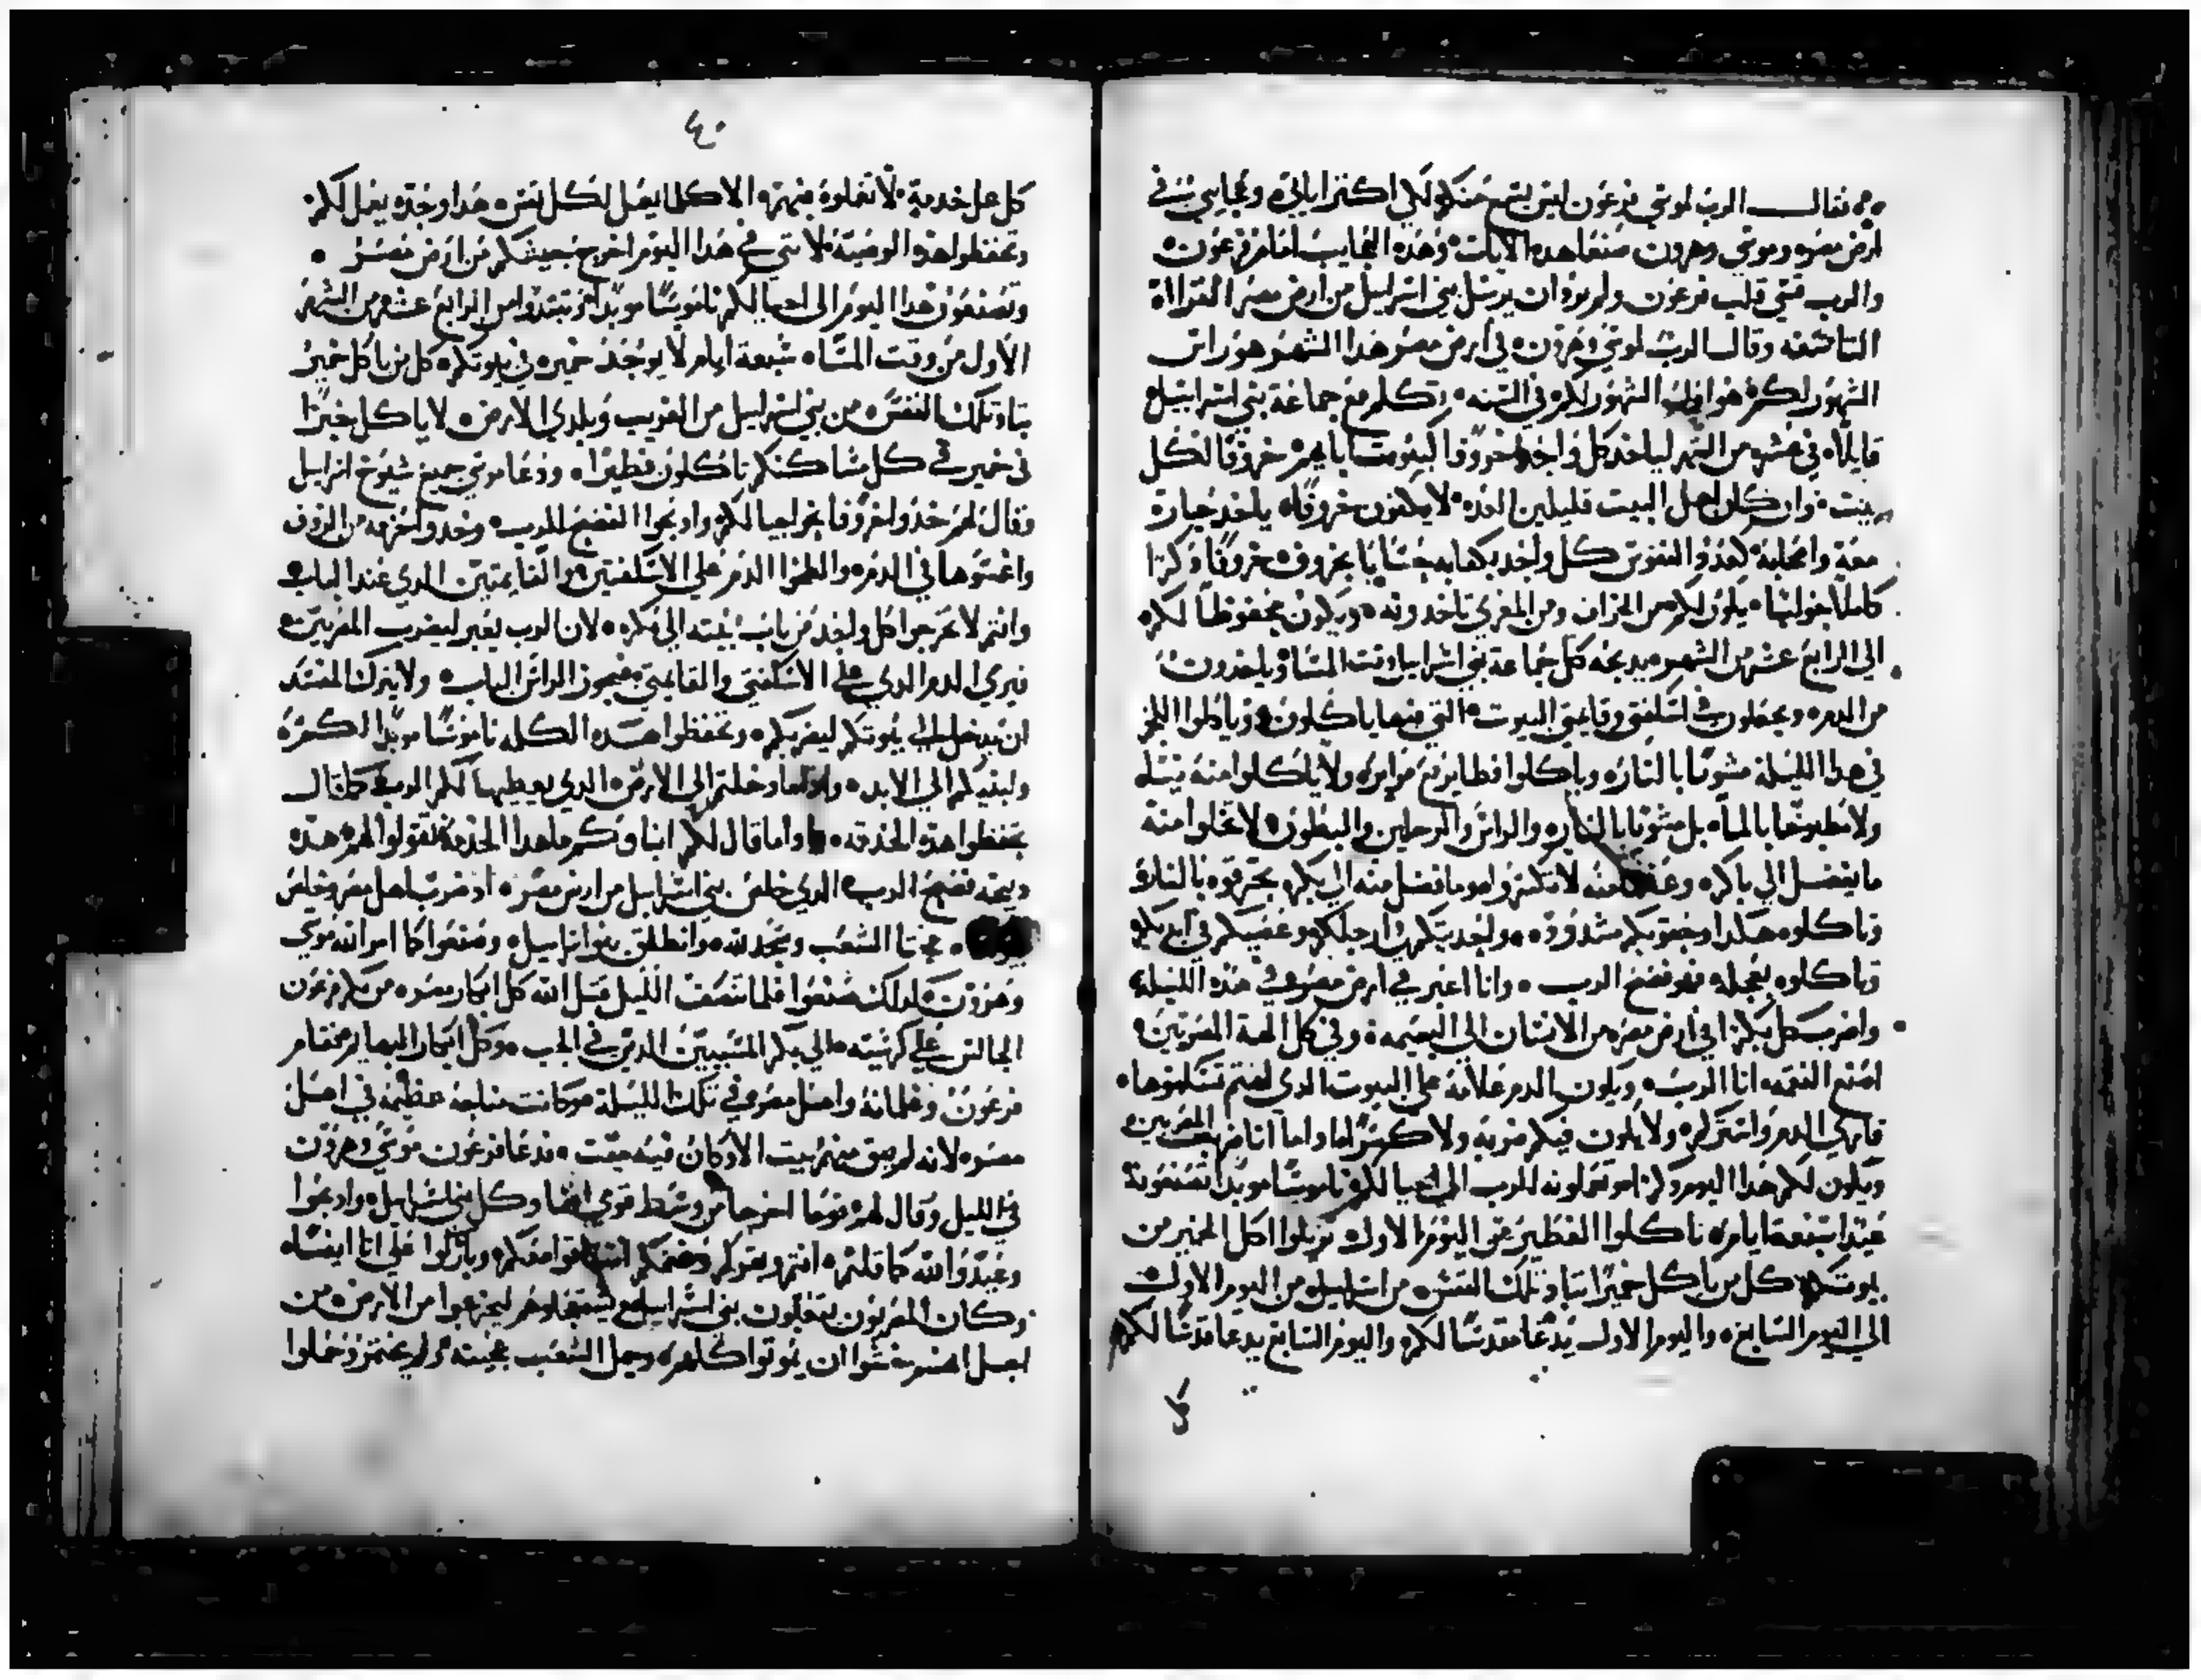 فقال الرب لموسي فرعون ليس يسمع منكم لكي اكثر اياتي وعجايبي في
ارض مصر وموسي وهرون صنعا هده الايات وهده العجايب امام فرعون
والرب قسي قلب فرعون ولم يرد ان يرسل بني اسراييل من ارض مصر القراة
التاسعه وقال الرب لموسي وهرون في ارض مصر هدا الشهر هو راس
الشهور لكم هو اول الشهور لكم في السنه تكلم مع جماعة بني اسراييل
قايلا في عشره من الشهر لياخد كل واحد خروفا لبيوت ابايهم خروفا لكل
بيت وان كان اهل البيت قليلين العدد لا يكفون خروفا ياخد جاره
معه كعدد النفوس كل واحد بخروف خروفا دكرا
كاملا حوليا يكون لكم من الخراف ومن المعزي تاخدونه ويكون محفوظا لكم
الي الرابع عشر من الشهر يدبحه كل جماعة بني اسراييل وقت المسا وياخدون
من الدم ويجعلون في اسكفتي وقايمتي البيوت التي فيها ياكلون وياكلوا اللحم
في هدا الليلة مشويا بالنار وياكلوا فطاير مع مراير ولا ياكلوا منه نيئا
ولا مطبوخا بالما بل مشويا بالنار والراس والرجلين والبطون لا تخلوا منه
ما يفضل الي باكر وعظما منه لا تكسروا وما فضل منه الي بكر تحرقوه بالنار
وتاكلوه هكدا وحقويكم مشدوده واحديتكم في ارجلكم وعصيكم في ايديكم
وتاكلوه بعجله فهو فصح الرب وانا اعبر في ارض مصر في هده الليله
واضرب كل بكر في ارض مصر من الانسان الي البهيمه وفي كل الهة المصريين
اصنع النقمه انا الرب ويكون الدم علامة علي البيوت الدي انتم تسكنوها
فاري الدم واستركم ولا يكون فيكم ضربه ولا كسر اما انا ضربت المصريين
ويكون لكم هدا اليوم دكر وتعملونه للرب الي احيالكم ناموسا موبدا تصنعونه
عيدا سبعة ايام تاكلوا الفطير من اليوم الاول تزيلوا اكل الخمير من
بيوتكم كل من ياكل خميرا تباد تلك النفس من اسراييل من اليوم الاول
الي اليوم السابع واليوم الاول يدعا مقدسا لكم واليوم السابع يدعا مقدسا لكم
كل
٤٠
كل عمل خدمة لا تعملوه فيهم الا كلما يعمل لكل نفس هدا وحده يعمل لكم
وتحفظوا هده الوصية لانني في هدا اليوم اخرج جيشكم من ارض مصر
وتصنعون هدا اليوم الي احيالكم ناموسا موبدا تبتدوا من الرابع عشر من الشهر
الاول من وقت المسا سبعة ايام لا يوجد خمير في بيوتكم كل من ياكل خمير
تباد تلك النفس من بني اسراييل من الغريب وبلدي الارض لا ياكل خبزا
في خمير في كل مساكنكم تاكلون فطيرا ودعا موسي جميع شيوخ اسراييل
وقال لهم خدوا خروفا لكم وادبحوا الفصح للرب وخدوا حزمه من الزوفا
واغمسوها في الدم والطخوا الدم علي الاسكفتين والقايمتين الدي عند الباب
وانتم لا تخرجوا كل واحد من باب بيته الي بكره لان الرب يعبر ليضرب المصريين
فيري الدم الدي علي الاسكفتي والقايمتي فيجوز الرب الباب ولا يترك المفسد
ان يدخل الي بيوتكم ليضربكم وتحفظوا هده الكلمه ناموسا موبدا لكم
ولبنيكم الي الابد وادا دخلتم الي الارض الدي يعطيها لكم الرب كما قال
تحفظوا هده الخدمه وادا ما قال لكم ابناوكم ما هدا الخدمة تقولوا لهم هده
دبيحه فصح الرب الدي خلص بني اسراييل من ارض مصر اد ضرب اهل مصر وخلص
بيوتنا فجتا الشعب وسجد لله وانطلق بنوا اسراييل وصنعوا كما امر الله موسي
وهرون كدلك صنعوا فلما انتصف الليل قتل الله كل ابكار مصر من بكر فرعون
الجالس علي كرسيه الي بكر المسبيين الدين في الجب وكل ابكار البهايم فقام
فرعون وغلمانه واهل مصر في تلك الليلة وكانت صايحة عظيمه في اهل
مصر لانه لم يبق منهم بيت الا وكان فيه ميت فدعا فرعون موسي وهرون
في الليل وقال لهم قوما اخرجا من وسط قومي انتما وكل بني اسراييل وادهبوا
وعبدوا الله كما قلتم انتم وبقركم وغنمكم معكم وباركوا علي انا ايضا
وكان المصريون يتعجلون بني اسراييل ليخرجوا من الارض من
اجل انهم ان يموتوا كلهم وحمل الشعب عجينه